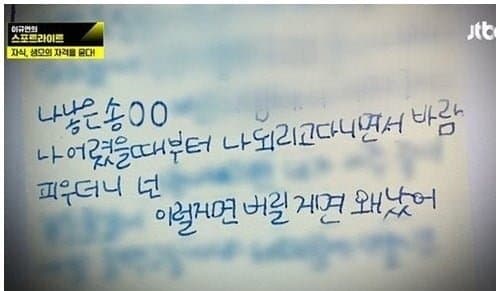 이규연의
스포트라이트
자식, 생모의 자격을 묻다!
jtbc
나낳은송00
나어렸을때부터 나되리고다니면서 바람
피우더니 넌
이럴게면 버릴 게면 왜났어